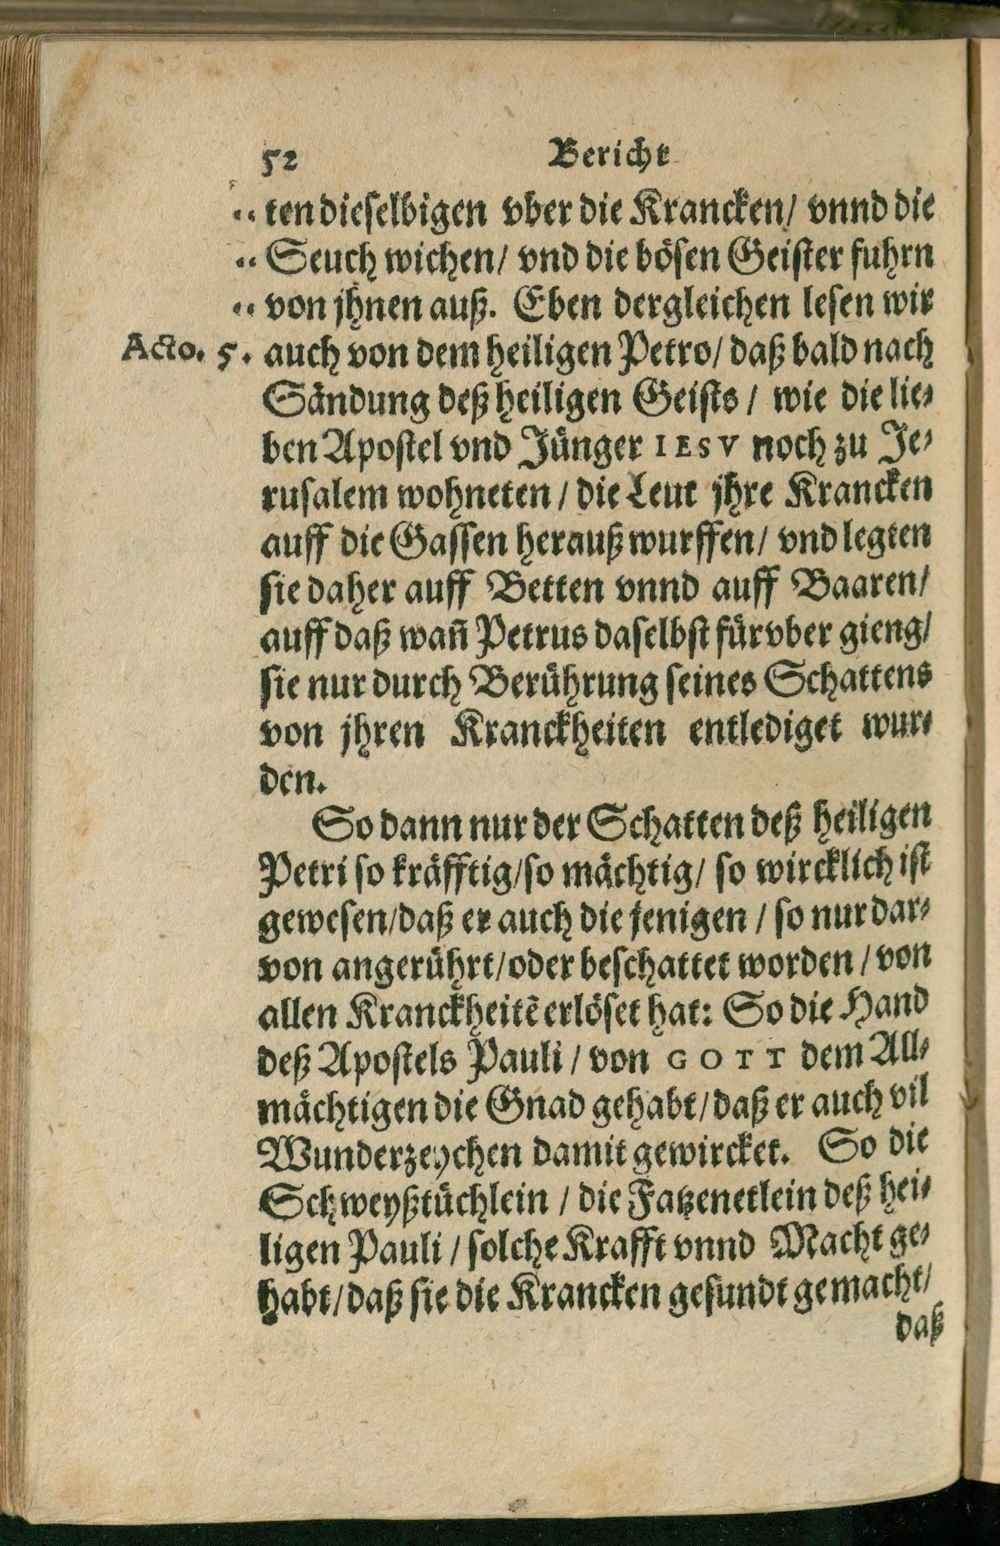 52 Bericht
“ ten dieselbigen vber die Krancken/ vnnd die
“ Seuch wichen/ vnd die bösen Geister fuhrn
“ von jhnen auß. Eben dergleichen lesen wir
Acto. 5. auch von dem heiligen Petro/ daß bald nach
Sändung deß heiligen Geists / wie die lie-
ben Apostel vnd Jünger IESV noch zu Je-
rusalem wohneten / die Leut jhre Krancken
auff die Gassen herauß wurffen/ vnd legten
sie daher auff Betten vnnd auff Baaren/
auff daß wañ Petrus daselbst fürvber gieng/
sie nur durch Berührung seines Schattens
von jhren Kranckheiten entlediget wur-
den.
So dann nur der Schatten deß heiligen
Petri so kräfftig/so mächtig/ so wircklich ist
gewesen/daß er auch die jenigen / so nur dar-
von angerührt/oder beschattet worden / von
allen Kranckheitẽ erlöset hat: So die Hand
deß Apostels Pauli / von GOTT dem All-
mächtigen die Gnad gehabt/daß er auch vil
Wunderzeychen damit gewircket. So die
Schweyßtüchlein / die Fatzenetlein deß hei-
ligen Pauli / solche Krafft vnnd Macht ge-
habt/daß sie die Krancken gesundt gemacht/
daß